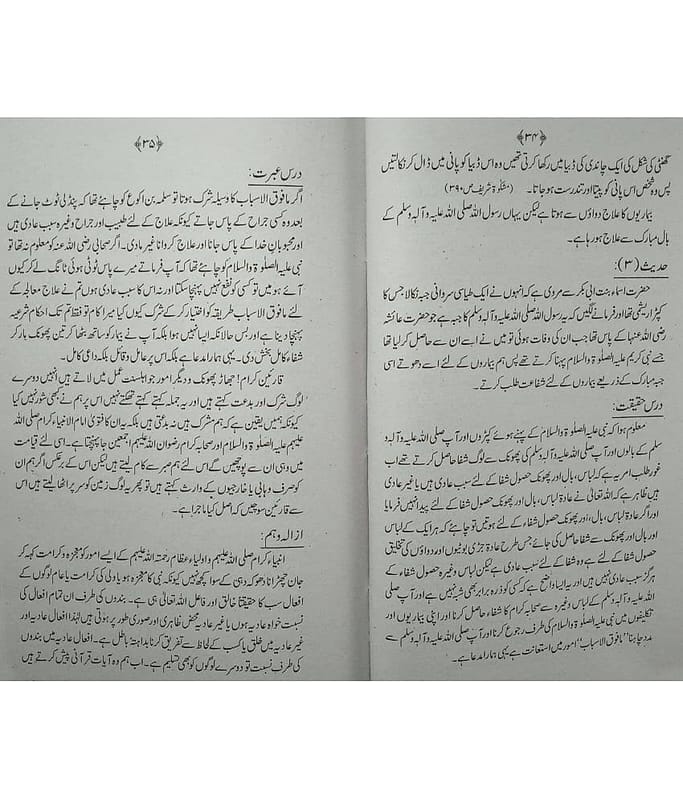 ﴿۳۴﴾
گھنٹی کی شکل کی ایک چاندی کی ڈبیا میں رکھا کرتی تھیں وہ اس ڈبیا کو پانی میں ڈال کر نکالتیں
پس وہ شخص اس پانی کو پیتا اور تندرست ہو جاتا۔ (مشکوٰۃ شریف ص ۳۹۰)
بیماریوں کا علاج دواؤں سے ہوتا ہے لیکن یہاں رسول اللہ صلی اللہ علیہ وآلہ وسلم کے
بال مبارک سے علاج ہو رہا ہے۔
حدیث (۳):
حضرت اسماء بنت ابی بکر سے مروی ہے کہ انہوں نے ایک طیالسی سروانی جبہ نکالا جس کا
کپڑا ریشمی تھا اور فرمانے لگیں کہ یہ رسول اللہ صلی اللہ علیہ وآلہ وسلم کا جبہ ہے جو حضرت عائشہ
رضی اللہ عنہا کے پاس تھا جب ان کی وفات ہوئی تو میں نے اسے ان سے حاصل کر لیا تھا
جسے نبی کریم علیہ الصلوٰۃ والسلام پہنا کرتے تھے پس ہم بیماروں کے لئے اسے دھوتے اسی
جبہ مبارک کے ذریعے بیماروں کے لئے شفاعت طلب کرتے۔
درس حقیقت:
معلوم ہوا کہ نبی علیہ الصلوٰۃ والسلام کے پہنے ہوئے کپڑوں اور آپ صلی اللہ علیہ وآلہ و
سلم کے بالوں اور آپ صلی اللہ علیہ وآلہ وسلم کی پھونک سے لوگ شفا حاصل کرتے تھے اب
غور طلب امر یہ ہے کہ لباس، بال اور پھونک حصول شفا کے لئے سبب عادی ہیں یا غیر عادی
ہیں ظاہر ہے کہ اللہ تعالیٰ نے عادۃ لباس، بال اور پھونک حصول شفا کے لئے پیدا نہیں فرمایا
اور اگر عادۃ لباس، بال، اور پھونک حصول شفا کے لئے ہوتیں تو چاہئے کہ ہر ایک کے لباس
اور بال اور پھونک سے شفا حاصل کی جائے جس طرح عادۃ جڑی بوٹیوں اور دواؤں کی تخلیق
حصول شفا کے لئے ہے وہ شفا کے لئے سبب عادی ہے لیکن لباس وغیرہ حصول شفاء کے
ہرگز سبب عادی نہیں ہیں اور یہ ایسا واضح ہے کہ کسی کو ذرہ برابر بھی شبہ نہیں ہے اور آپ صلی
اللہ علیہ وآلہ وسلم کے لباس وغیرہ سے صحابہ کرام کا شفاء حاصل کرنا اور اپنی بیماریوں اور
تکلیفوں میں نبی علیہ الصلوٰۃ السلام کی طرف رجوع کرنا اور آپ صلی اللہ علیہ وآلہ وسلم سے
مدد چاہنا ”مافوق الاسباب“ امور میں استعانت ہے یہی ہمارا مدعا ہے۔
﴿۳۵﴾
درس عبرت:
اگر مافوق الاسباب کا وسیلہ شرک ہوتا تو سلمہ بن اکوع کو چاہئے تھا کہ پنڈلی ٹوٹ جانے کے
بعد وہ کسی جراح کے پاس جاتے کیونکہ علاج کے لئے طبیب اور جراح وغیرہ سبب عادی ہیں
اور محبوبان خدا کے پاس جانا اور علاج کروانا غیر مادی۔ اگر صحابی رضی اللہ عنہ کو معلوم نہ تھا تو
نبی علیہ الصلوٰۃ والسلام کو چاہئے تھا کہ آپ فرماتے میرے پاس ٹوٹی ہوئی ٹانگ لے کر کیوں
آئے ہو میں تو کسی کو نفع نہیں پہنچا سکتا اور نہ اس کا سبب عادی ہوں تم نے علاج معالجہ کے
لئے مافوق الاسباب طریقہ کو اختیار کر کے شرک کیوں کیا میرا کام تو فقط تم تک احکام شرعیہ
پہنچا دینا ہے اور بس حالانکہ ایسا نہیں ہوا بلکہ آپ نے بیمار کو ساتھ بٹھا کر تین پھونک مار کر
شفاء کامل بخش دی۔ یہی ہمارا مدعا ہے بلکہ اس پر عامل و قائل بلکہ داعی کامل۔
قارئین کرام! جھاڑ پھونک و دیگر امور جو اہلسنت عمل میں لاتے ہیں انہیں دوسرے
لوگ شرک اور بدعت کہتے ہیں اور یہ جملہ کہتے کہتے تھکتے نہیں اس پر ہم نے کبھی شور نہیں کیا
کیونکہ ہمیں یقین ہے کہ ہم مشرک ہیں نہ بدعتی ہیں بلکہ یہ ان کا فتویٰ امام الانبیاء کرام صلی اللہ
علیہم علیہ الصلوٰۃ والسلام اور صحابہ کرام رضوان اللہ علیہم اجمعین تک جا پہنچتا ہے۔ اسی لئے قیامت
میں وہی ان سے پوچھیں گے اس لئے ہم صبر سے کام لیتے ہیں لیکن اس کے برعکس اگر ہم ان
کو صرف وہابی یا خارجیوں کے وارث کہتے ہیں تو پھر یہ لوگ زمین کو سر پر اٹھا لیتے ہیں اس
سے قارئین سوچیں کہ اصل کیا ماجرا ہے۔
ازالہ وہم:
انبیاء کرام صلی اللہ علیہم و اولیاء عظام رحمتہ اللہ علیہم کے ایسے امور کو معجزہ و کرامت کہہ کر
جان چھڑانا دھوکہ دہی کے سوا کچھ نہیں کیونکہ نبی کا معجزہ ہو یا ولی کی کرامت یا عام لوگوں کے
افعال سب کا حقیقتاً خالق اور فاعل اللہ تعالیٰ ہی ہے۔ بندوں کی طرف ان تمام افعال کی
نسبت خواہ عادیہ ہوں یا غیر عادیہ محض ظاہری اور صوری طور پر ہوتی ہیں لہٰذا افعال عادیہ اور
غیر عادیہ میں خلق یا کسب کے لحاظ سے تفریق کرنا بداہۃ باطل ہے۔ افعال عادیہ میں بندوں
کی طرف نسبت تو دوسرے لوگوں کو بھی تسلیم ہے۔ اب ہم وہ آیات قرآنی پیش کرتے ہیں